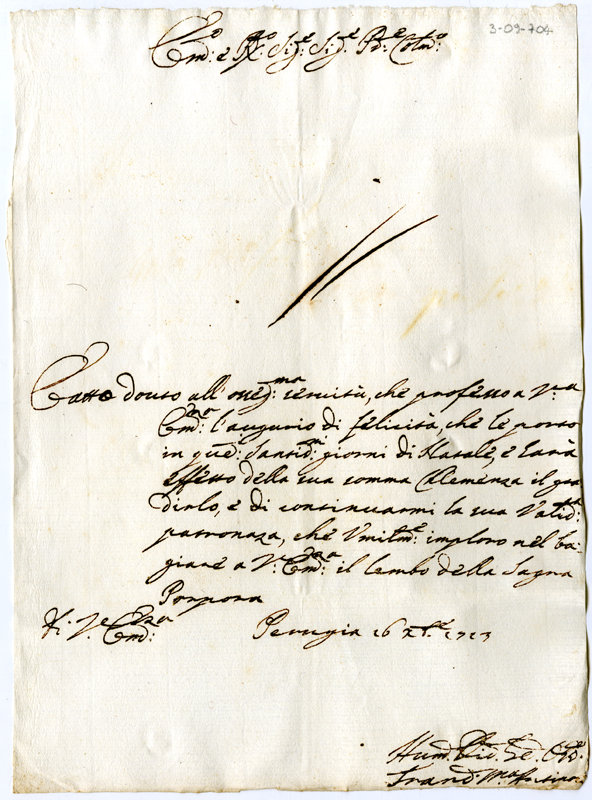 3-09-704
Em.º e R.º Sig.re Sig.re P.ne Colmo
atto douto all' osseq.ma seruitù, che professo a V.ra
Em.za l'augurio di felicità, che le porto
in que: Santiss.i giorni di Natale, e sarà
effetto della sua somma Clemenza il gra
dirlo, e di continuarmi la sua Valid.ma
patronanza, che Vmilm.e imploro nel ba-
giare a V. Em.za il lembo della Sagra
Porpora
Di V. Em.za
Perugia 16 Xbre
Hum.
Fran.